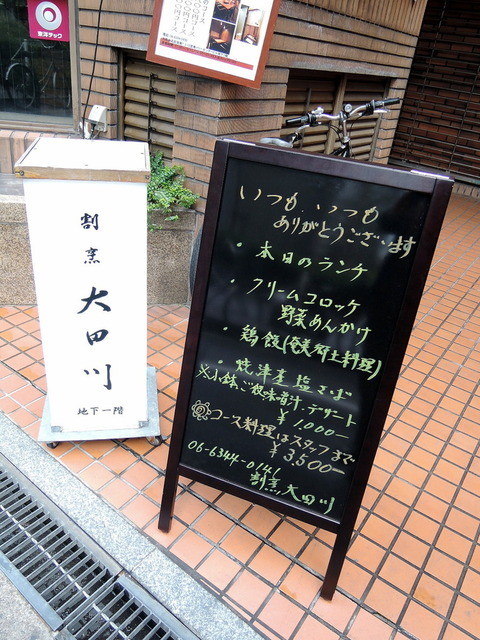 割烹
大田川
地下一階
いつも、いつも
ありがとうございます
・本日のランチ
・クリームコロッケ
野菜あんかけ
・鶏飯(奄美郷土料理)
・焼津産塩さば
※小鉢、ご飯、味噌汁、デザート
¥1,000−
コース料理はスタッフまで
¥3,500−
06-6344-0141
割烹大田川